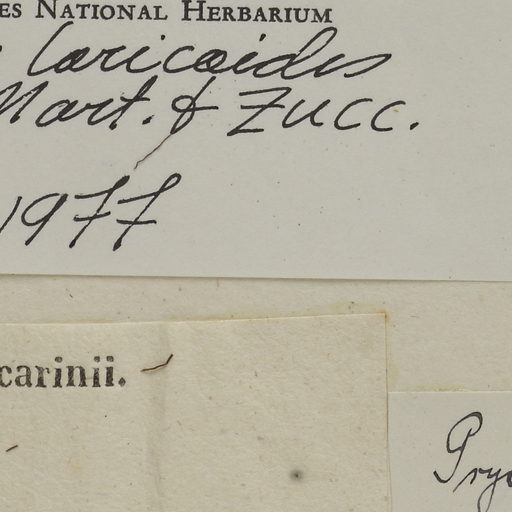 ES NATIONAL HERBARIUM
laricoides
Mart. & Zucc.
1977
carinii.
Pryo